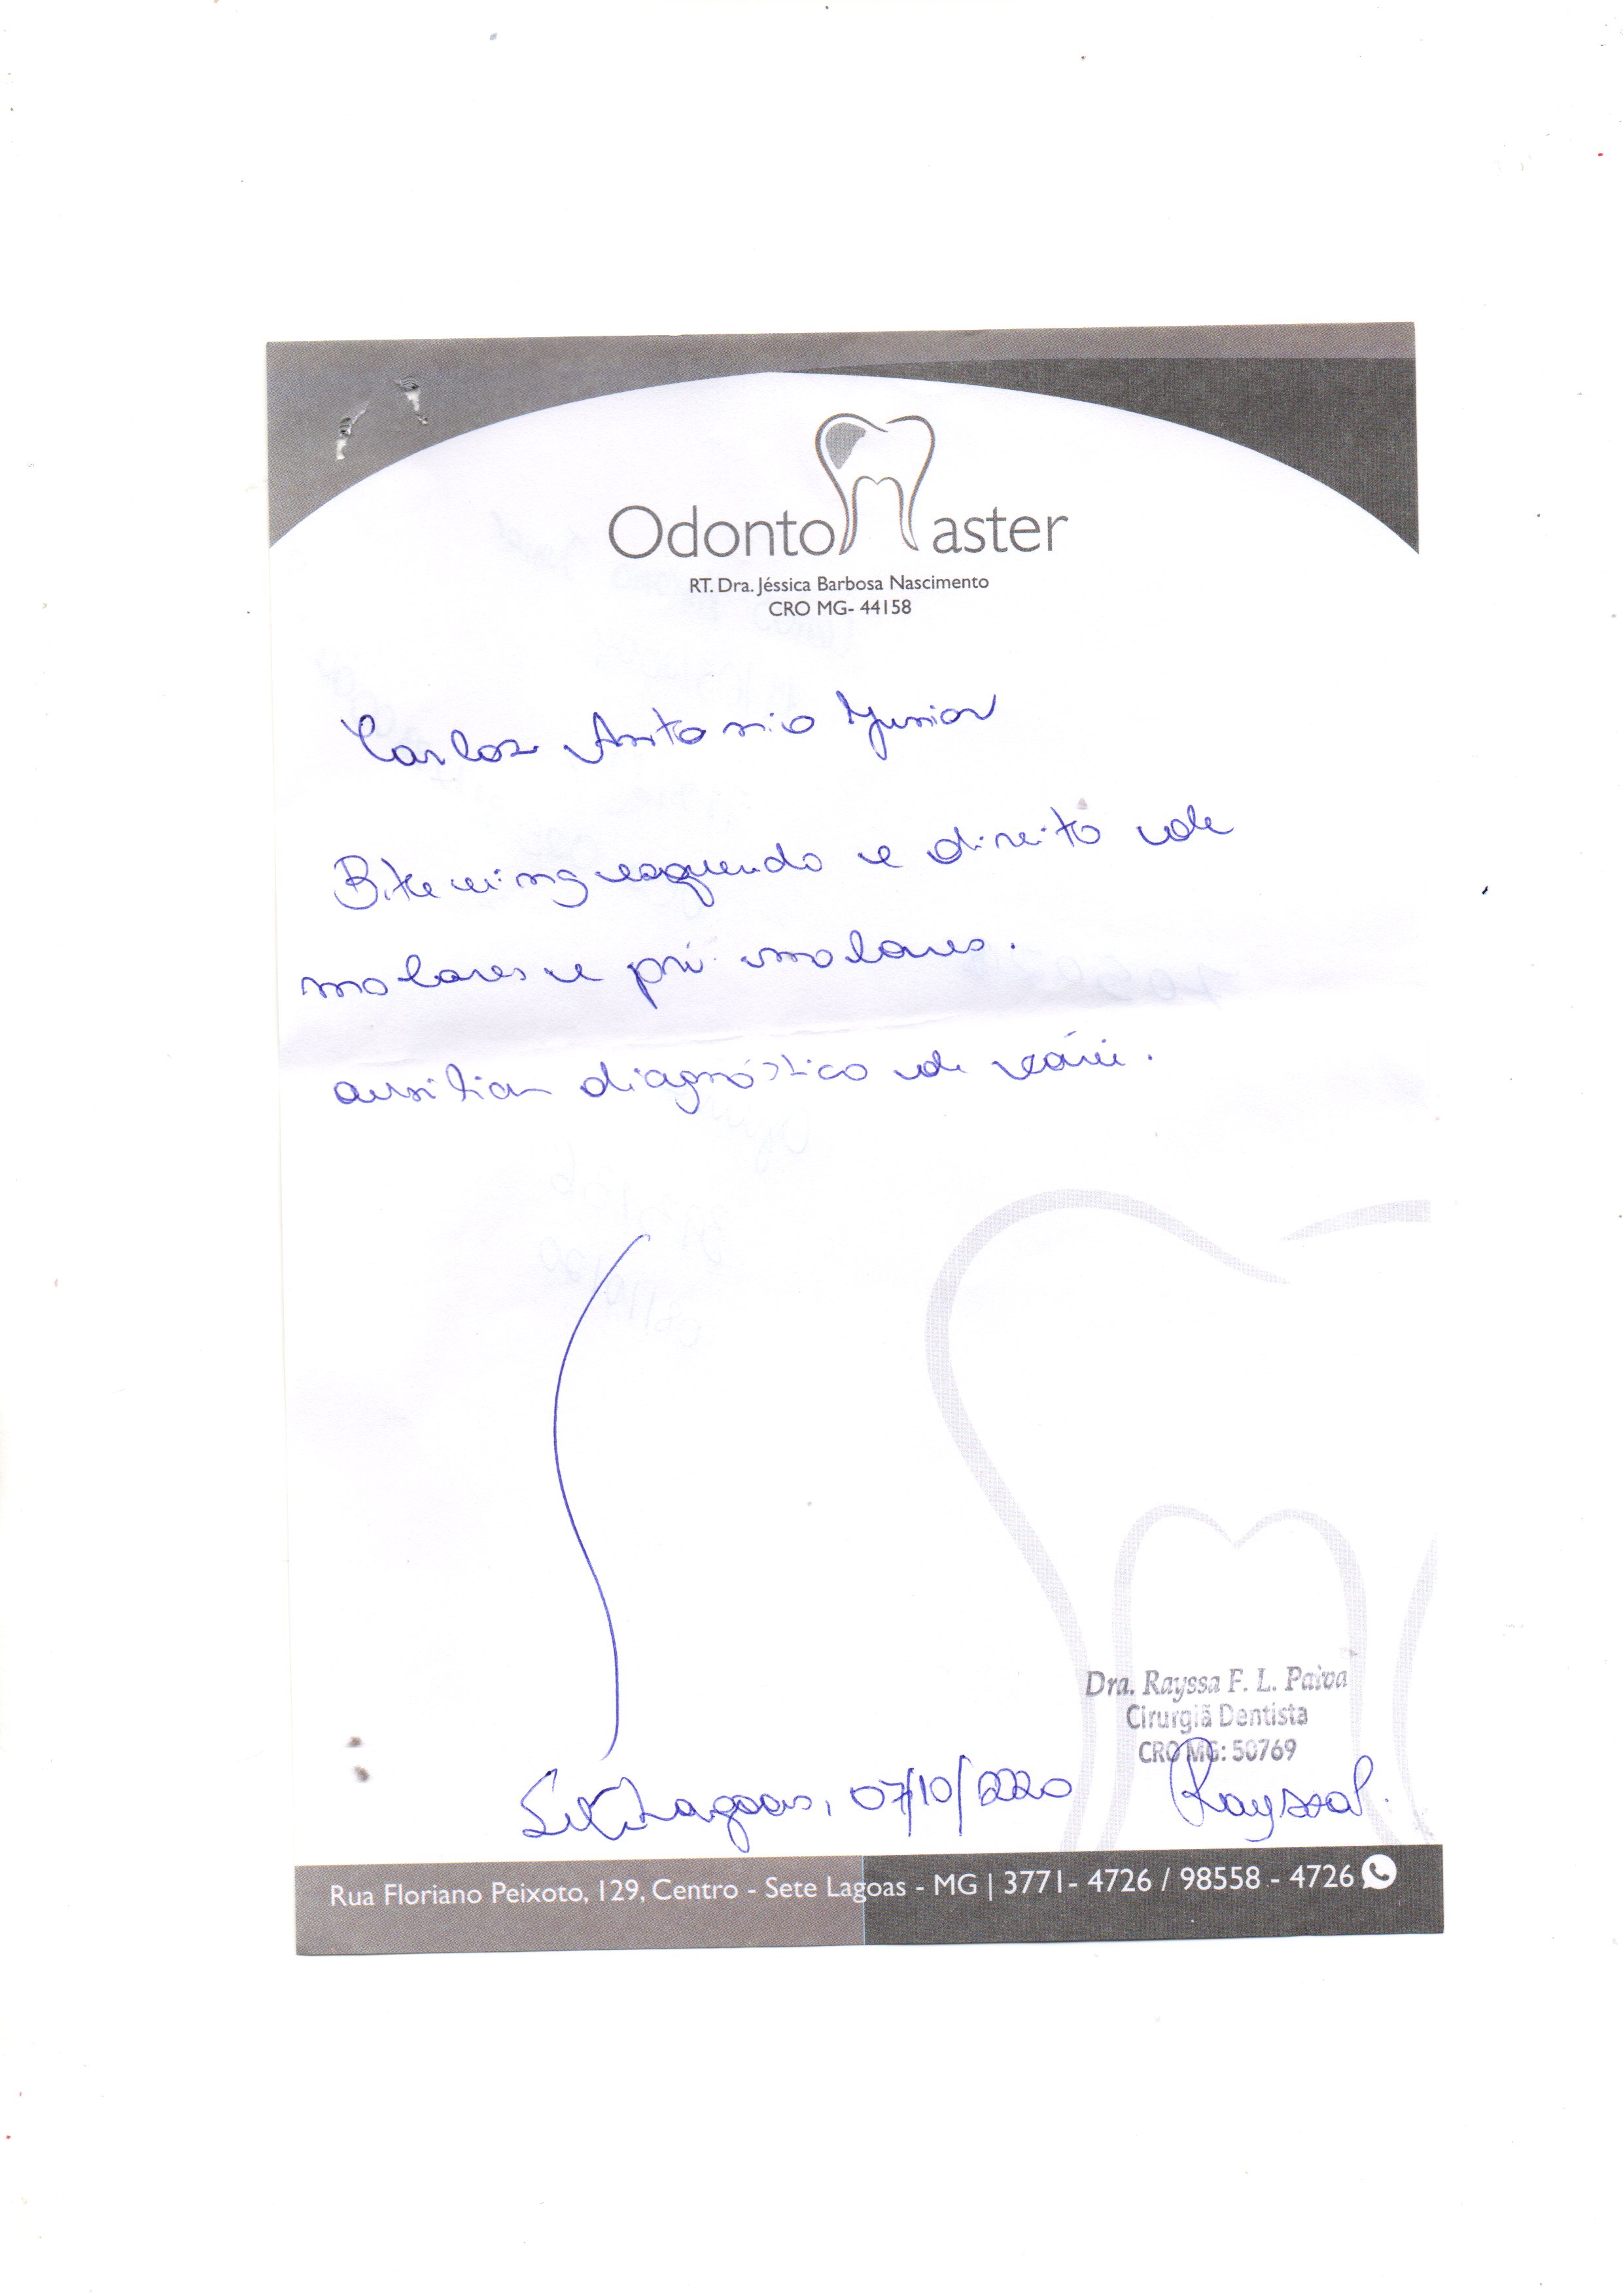 Odonto Master
RT. Dra. Jéssica Barbosa Nascimento
CRO MG- 44158
Carlos Antonio Junior
Bite wing esquerdo e direito de
molares e pré molares.
auxiliar diagnóstico de cárie.
Dra. Rayssa F. L. Paiva
Cirurgiã Dentista
CRO MG: 50769
Sete Lagoas, 07/10/2020 Rayssa
Rua Floriano Peixoto, 129, Centro - Sete Lagoas - MG | 3771- 4726 / 98558 - 4726